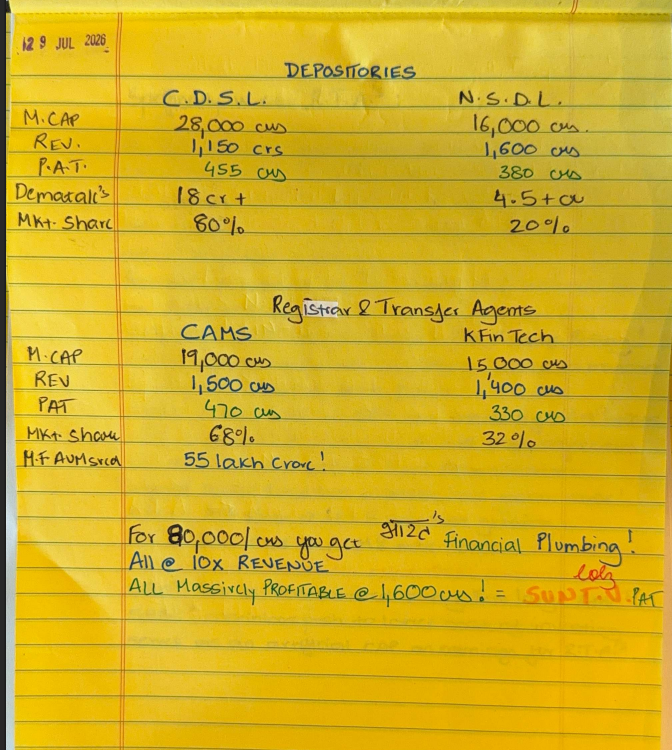 29 JUL 2026
DEPOSITORIES
C.D.S.L. N.S.D.L.
M.CAP 28,000 crs 16,000 crs.
REV. 1,150 crs 1,600 crs
P.A.T. 455 crs 380 crs
18 cr + 4.5+ cr
Mkt. Share 80% 20%
Registrar & Transfer Agents
CAMS KFin Tech
M.CAP 19,000 crs 15,000 crs
REV 1,500 crs 1,400 crs
PAT 470 crs 330 crs
Mkt. Share 68% 32%
M.F AUM 55 lakh Crore!
For 80,000/ crs you get भारत's Financial Plumbing!
All @ 10x REVENUE
lolz
ALL Massively PROFITABLE @ 1,600 crs! = SUN T.V. PAT